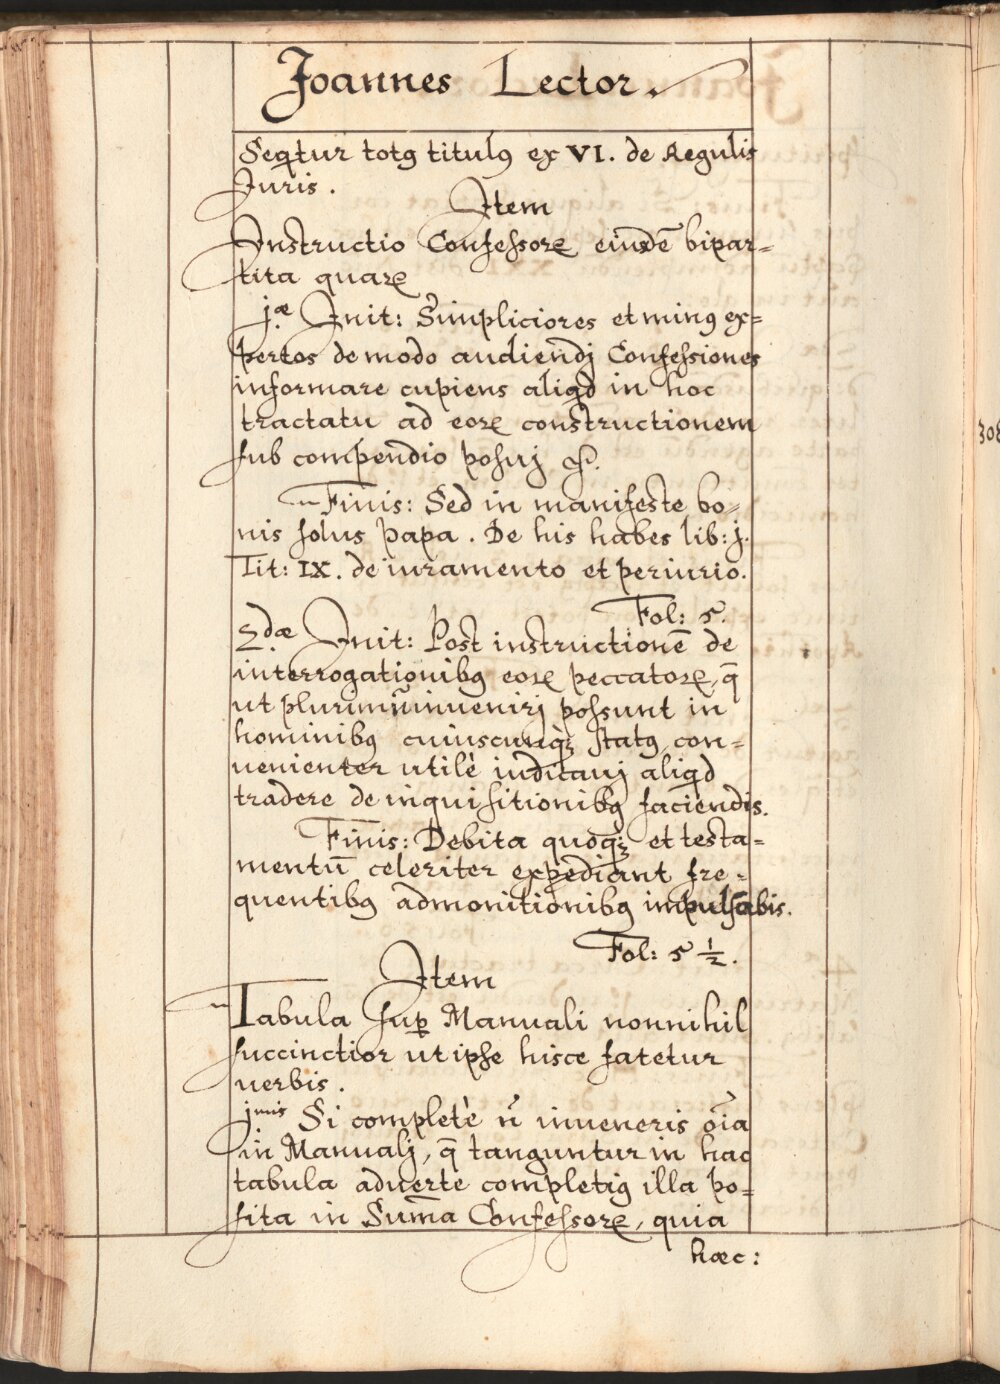 Joannes Lector.
Seqtur totꝯ titulꝯ ex VI. de Regulis
Juris.
Item
Instructio Confessorꝝ eiusdē bipar=
tita quarꝝ
j.æ Init: Simpliciores et minꝯ ex=
pertos de modo audiendj Confessiones
informare cupiens aliqd in hoc
tractatu ad eorꝝ constructionem
sub compendio posuj &.
Finis: Sed in manifeste bo=
nis solus papa. De his habes lib: j.
Tit: IX. de iuramento et periurio.
Fol: 5.
2.dæ Init: Post instructionē de
interrogationibꝯ eorꝝ peccatorꝝ, q̄
ut plurimū inuenirj possunt in
hominibꝯ cuiuscunqꝫ statꝯ con=
uenienter utilè iudicauj aliqd
tradere de inquisitionibꝯ faciendis.
Finis: Debita quoqꝫ et testa=
mentū celeriter expediant fre=
quentibꝯ admonitionibꝯ impulsabis.
Fol: 5 ½.
Item
Tabula sup̱ Manuali nonnihil
succinctior ut ipse hisce fatetur
uerbis.
jmis Si completè n̄ inueneris oīa
in Manualj, q̄ tanguntur in hac
tabula aduerte completiꝯ illa po=
sita in Sum̄a Confessorꝝ, quia
hæc:
308